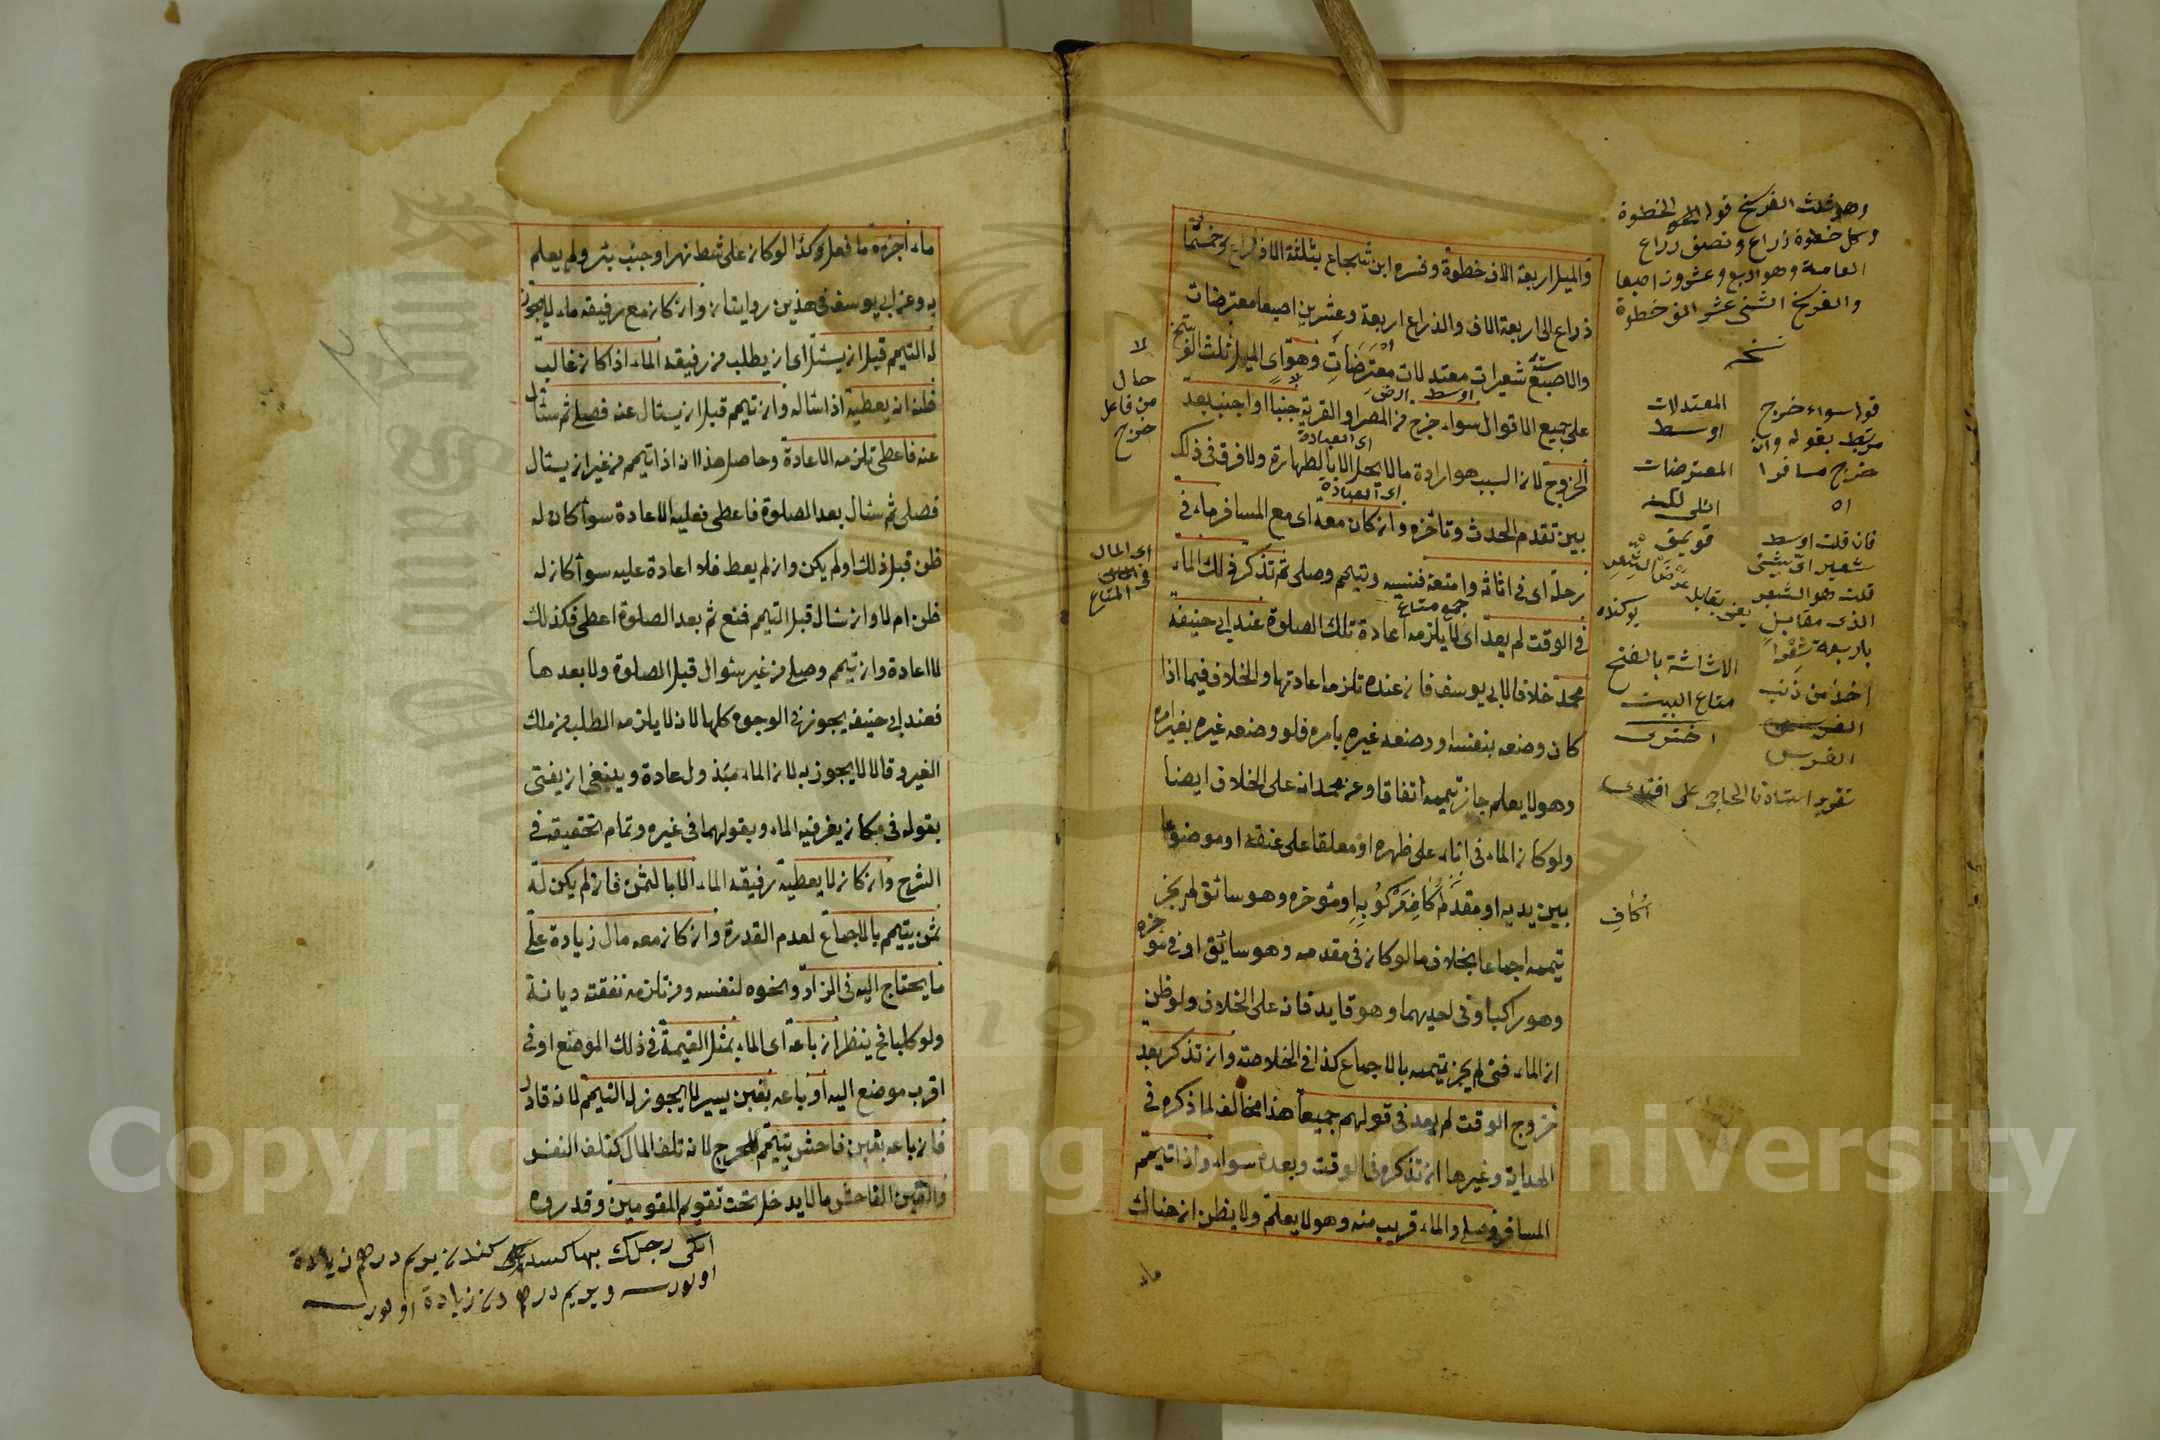 وهو ثلث الفرسخ
وكل خطوة ذراع ونصف ذراع
العامة وهو اربع وعشرون اصبعا
والفرسخ اثنى عشر الف خطوة
والميل اربعة الاف خطوة وفسره ابن شجاع بثلثة الاف ذراع وخمسمائة
ذراع الى اربعة الاف والذراع اربعة وعشرين اصبعا معترضات
والاصبع ستة شعيرات معتدلات معترضات وهو اى الميل ثلث الفرسخ
على جميع الاقوال سواء خرج من المصر او القرية جنبا او اجنب بعد
الخروج لان السبب هو ارادة ما لا يحل الا بالطهارة ولا فرق فى ذلك
بين تقدم الحدث وتأخره وان كان معه اى مع المسافر ماء فى
رحله اى فى اثاثه وامتعة فنسيه وتيمم وصلى ثم تذكر فى ذلك الماء
فى الوقت لم يعد اى لا يلزمه اعادة تلك الصلوة عند ابى حنيفة
محمد خلافا لابى يوسف فان عنده تلزمه اعادتها والخلاف فيما اذا
كان وضعه بنفسه او وضعه غيره بامره فلو وضعه غيره بغير امره
وهو لا يعلم جاز تيممه اتفاقا وعن محمد انه على الخلاف ايضا
ولو كان الماء فى اناء على ظهره او معلقا على عنقه او موضوعا
بين يديه او مقدم اكاف مركوبه او مؤخره وهو سائق لم يجز
تيممه اجماعا بخلاف ما لو كان فى مقدمه وهو سائق او فى مؤخره
وهو راكب او فى احديهما وهو قايد فانه على الخلاف ولو ظن
ان الماء فنى لم يجز تيممه بالاجماع كذا فى الخلاصة وان تذكر بعد
خروج الوقت لم يعد فى قولهم جميعا هذا مخالف لما ذكره فى
الهداية وغيرها ان تذكره فى الوقت وبعده سواء واذا تيمم
المسافر وصلى والماء قريب منه وهو لا يعلم ولا يظن ان هناك
ماء
المعتدلات
اوسط
المعترضات
قوله سواء خرج
مرتبط بقوله وان
خرج مسافرا
اه
فان قلت اوسط
شعير اى شئ
قلت هو الشعير
الذى مقابل
الاثاثة بالفتح
متاع البيت
اختري
تقرير استاذنا الحاجى على افندى
اكاف
لا
حال
من فاعل
خرج
اوسط
اى العبادة
اى العبادة
جمع متاع
ماء اجزءه ما فعل وكذا لو كان على شط نهر او جنب بئر ولم يعلم
به وعن ابى يوسف فى هذين روايتان وان كان مع رفيقه ماء لا يجوز
له التيمم قبل ان يسئل اى ان يطلب من رفيقه الماء اذا كان غالب
ظنه انه يعطيه اذا سأله وان تيمم قبل ان يسئال عنه فصلى ثم سئال
عنه فاعطى تلزمه الاعادة وحاصل هذا ان اذا تيمم من غير ان يسئال
فصلى ثم سئال بعد الصلوة فاعطى فعليه الاعادة سواء كان له
ظن قبل ذلك اولم يكن وان لم يعط فلا اعادة عليه سواء كان له
ظن ام لا وان سئال قبل التيمم فمنع ثم بعد الصلوة اعطى فكذلك
لا اعادة وان تيمم وصلى من غير سئوال قبل الصلوة ولا بعدها
فعند ابى حنيفة يجوز فى الوجوه كلها لان لا يلزمه الطلب من ملك
الغير وقالا لا يجوز به لان الماء مبذول عادة وينبغى ان يفتى
بقوله فى مكان يعز فيه الماء وبقولهما فى غيره وتمام تحقيقه فى
الشرح وان كان لا يعطيه رفيقه الماء الا بالثمن فان لم يكن له
ثمن يتيمم بالاجماع لعدم القدرة وان كان معه مال زيادة على
ما يحتاج اليه فى الزاد ونحوه لنفسه ومن تلزمه نفقته ديانة
ولو كلبا فح ينظر ان باعه اى الماء بمثل القيمة فى ذلك الموضع او فى
اقرب موضع اليه او باعه بغبن يسير لا يجوز له التيمم لانه قادر
فان باعه بغبن فاحش يتيمم للحرج لان تلف المال كتلف النفس
والغبن الفاحش ما لا يدخل تحت تقويم المقومين وقدروه
Copyright © King Saud University